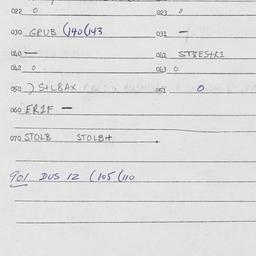 022 0 023 0
030 GRUB (140(143 031 —
040 — 041 STBEStR1
042 0 043 0
050 ) StLBAX 051 0
060 ER1F —
070 STOLB STOLB+
901 DUS 12 (105(110